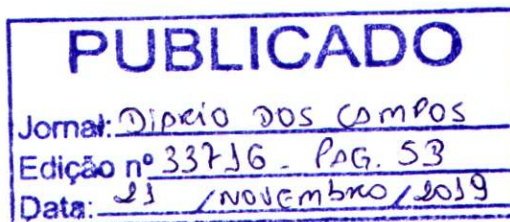 PUBLICADO
Jornal: DIARIO DOS CAMPOS
Edição nº 33716 - PAG. 5B
Data: 21 / NOVEMBRO / 2019